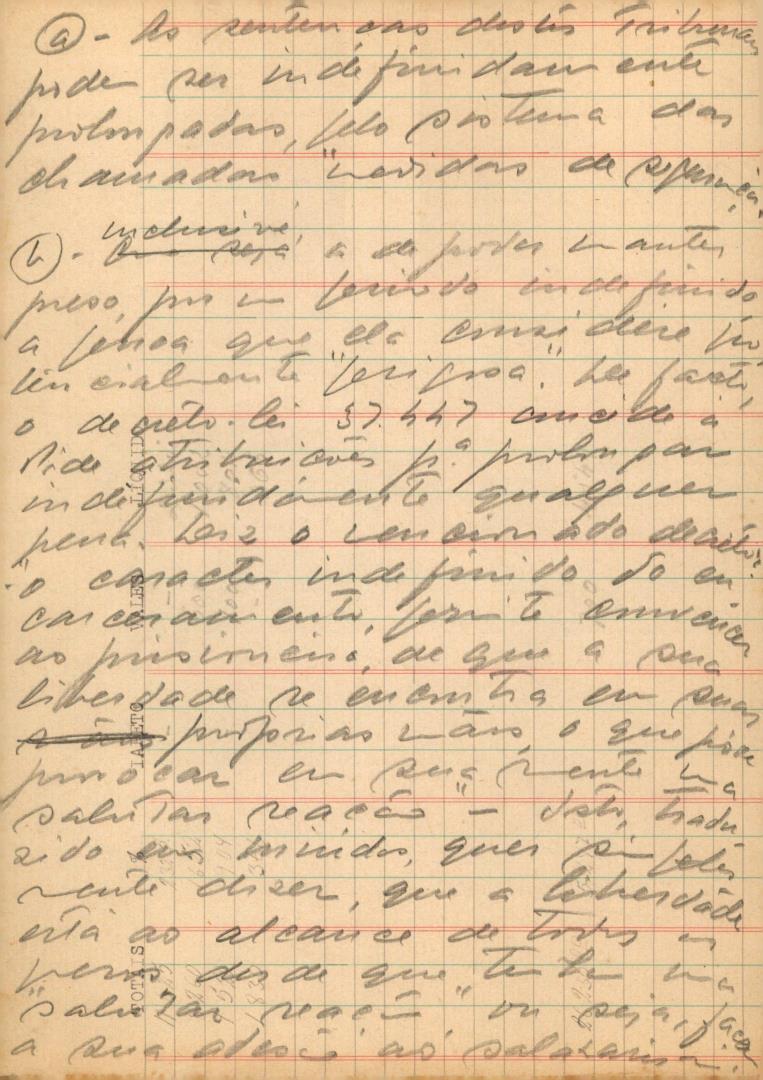 a - As sentenças destes Tribunais
podem ser indefinidamente
prolongadas, pelo sistema das
chamadas "medidas de segurança.
inclusivé,
b - a de poder manter
preso, por um periodo indefinido,
a pessoa que ela considere po-
tencialmente "perigosa". De facto,
o decreto-lei 37.447 concede à
Pide atribuições p.ª prolongar
indefinidamente qualquer
pena. Diz o mencionado decreto:
"o caracter indefinido do en-
carceramento, permite convencer
ao prisioneiro, de que a sua
liberdade se encontra em suas
próprias mãos, o que pode
provocar em sua mente uma
salutar reação" - Isto, tradu-
zido em miudos, quer simples-
mente dizer, que a liberdade
está ao alcance de todos os
presos desde que tenham uma
"salutar reação" ou seja, façam
a sua adesão ao salazarismo.
LIQUIDO
VALES
TOTAIS